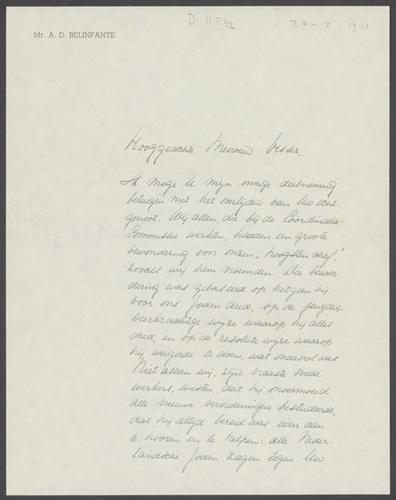 D. 11.542
20-2-1941
Mr. A. D. BELINFANTE
Hooggeachte Mevrouw Visser,
Ik moge U mijn innige deelneming
betuigen met het overlijden van Uw echt-
genoot. Wij allen, die bij de Coördinatie-
Commissie werkten, hadden een groote
bewondering voor onzen "hoogsten chef",
zooals wij hem noemden. Die bewon-
dering was gebaseerd op hetgeen hij
voor ons Joden deed, op de
wijze waarop hij alles
deed, en op de resolute wijze waarop
hij weigerde te doen, wat onrecht was
Niet alleen wij, zijn naaste mede-
werkers, wisten, dat hij onvermoeid
alle nieuwe verordeningen bestudeerde,
dat hij altijd bereid was ieder aan
te hooren en te helpen: alle Neder-
landsche Joden zagen tegen Uw